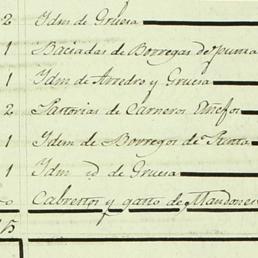 2 Idm de Gruesa
1 Baciadas de Borregas de punta
1 Idm de Arredro y Gruesa
2 Sartorias de Carneros Añefos
1 Idem de Borregos de Punta
1 Idm id de Gruesa
Cabrettos y ganō de Mandones